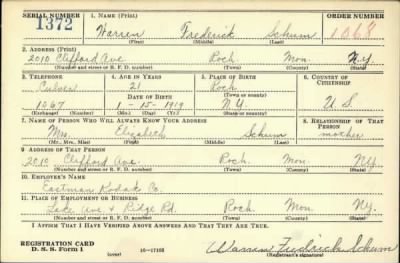 SERIAL NUMBER 1. NAME (Print) ORDER NUMBER
1372 Warren Frederick Schum 1068
(First) (Middle) (Last)
2. ADDRESS (Print)
2010 Clifford Ave Roch. Mon. N.Y.
(Number and street or R. F. D. number) (Town) (County) (State)
3. TELEPHONE 4. AGE IN YEARS 5. PLACE OF BIRTH 6. COUNTRY OF CITIZENSHIP
Culver 21 Roch.
DATE OF BIRTH (Town or county)
1067 1-15-1919 N.Y. U S
(Exchange) (Number) (Mo.) (Day) (Yr.) (State or country)
7. NAME OF PERSON WHO WILL ALWAYS KNOW YOUR ADDRESS 8. RELATIONSHIP OF THAT PERSON
Mrs. Elizabeth Schum mother
(Mr., Mrs., Miss) (First) (Middle) (Last)
9. ADDRESS OF THAT PERSON
2010 Clifford Ave. Roch. Mon. NY
(Number and street or R. F. D. number) (Town) (County) (State)
10. EMPLOYER'S NAME
Eastman Kodak Co.
11. PLACE OF EMPLOYMENT OR BUSINESS
Lake Ave & Ridge Rd. Roch. Mon. Ny.
(Number and street or R. F. D. number) (Town) (County) (State)
I AFFIRM THAT I HAVE VERIFIED ABOVE ANSWERS AND THAT THEY ARE TRUE.
REGISTRATION CARD
D. S. S. Form 1 (over) 16—17105 Warren Fredrick Schum
(Registrant's signature)